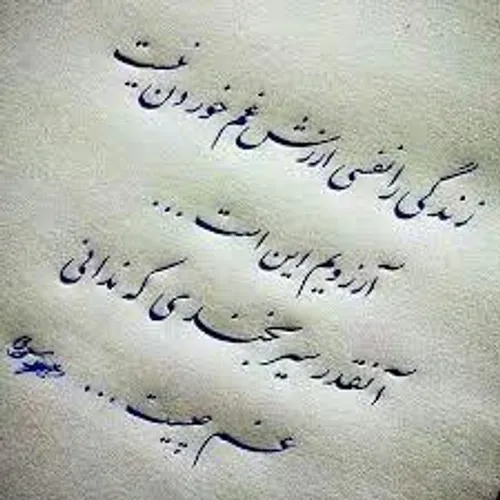 زندگی را نفسی ارزش غم خوردن نیست
آرزویم این است...
آنقدر سیر بخندی که ندانی
غم چیست...